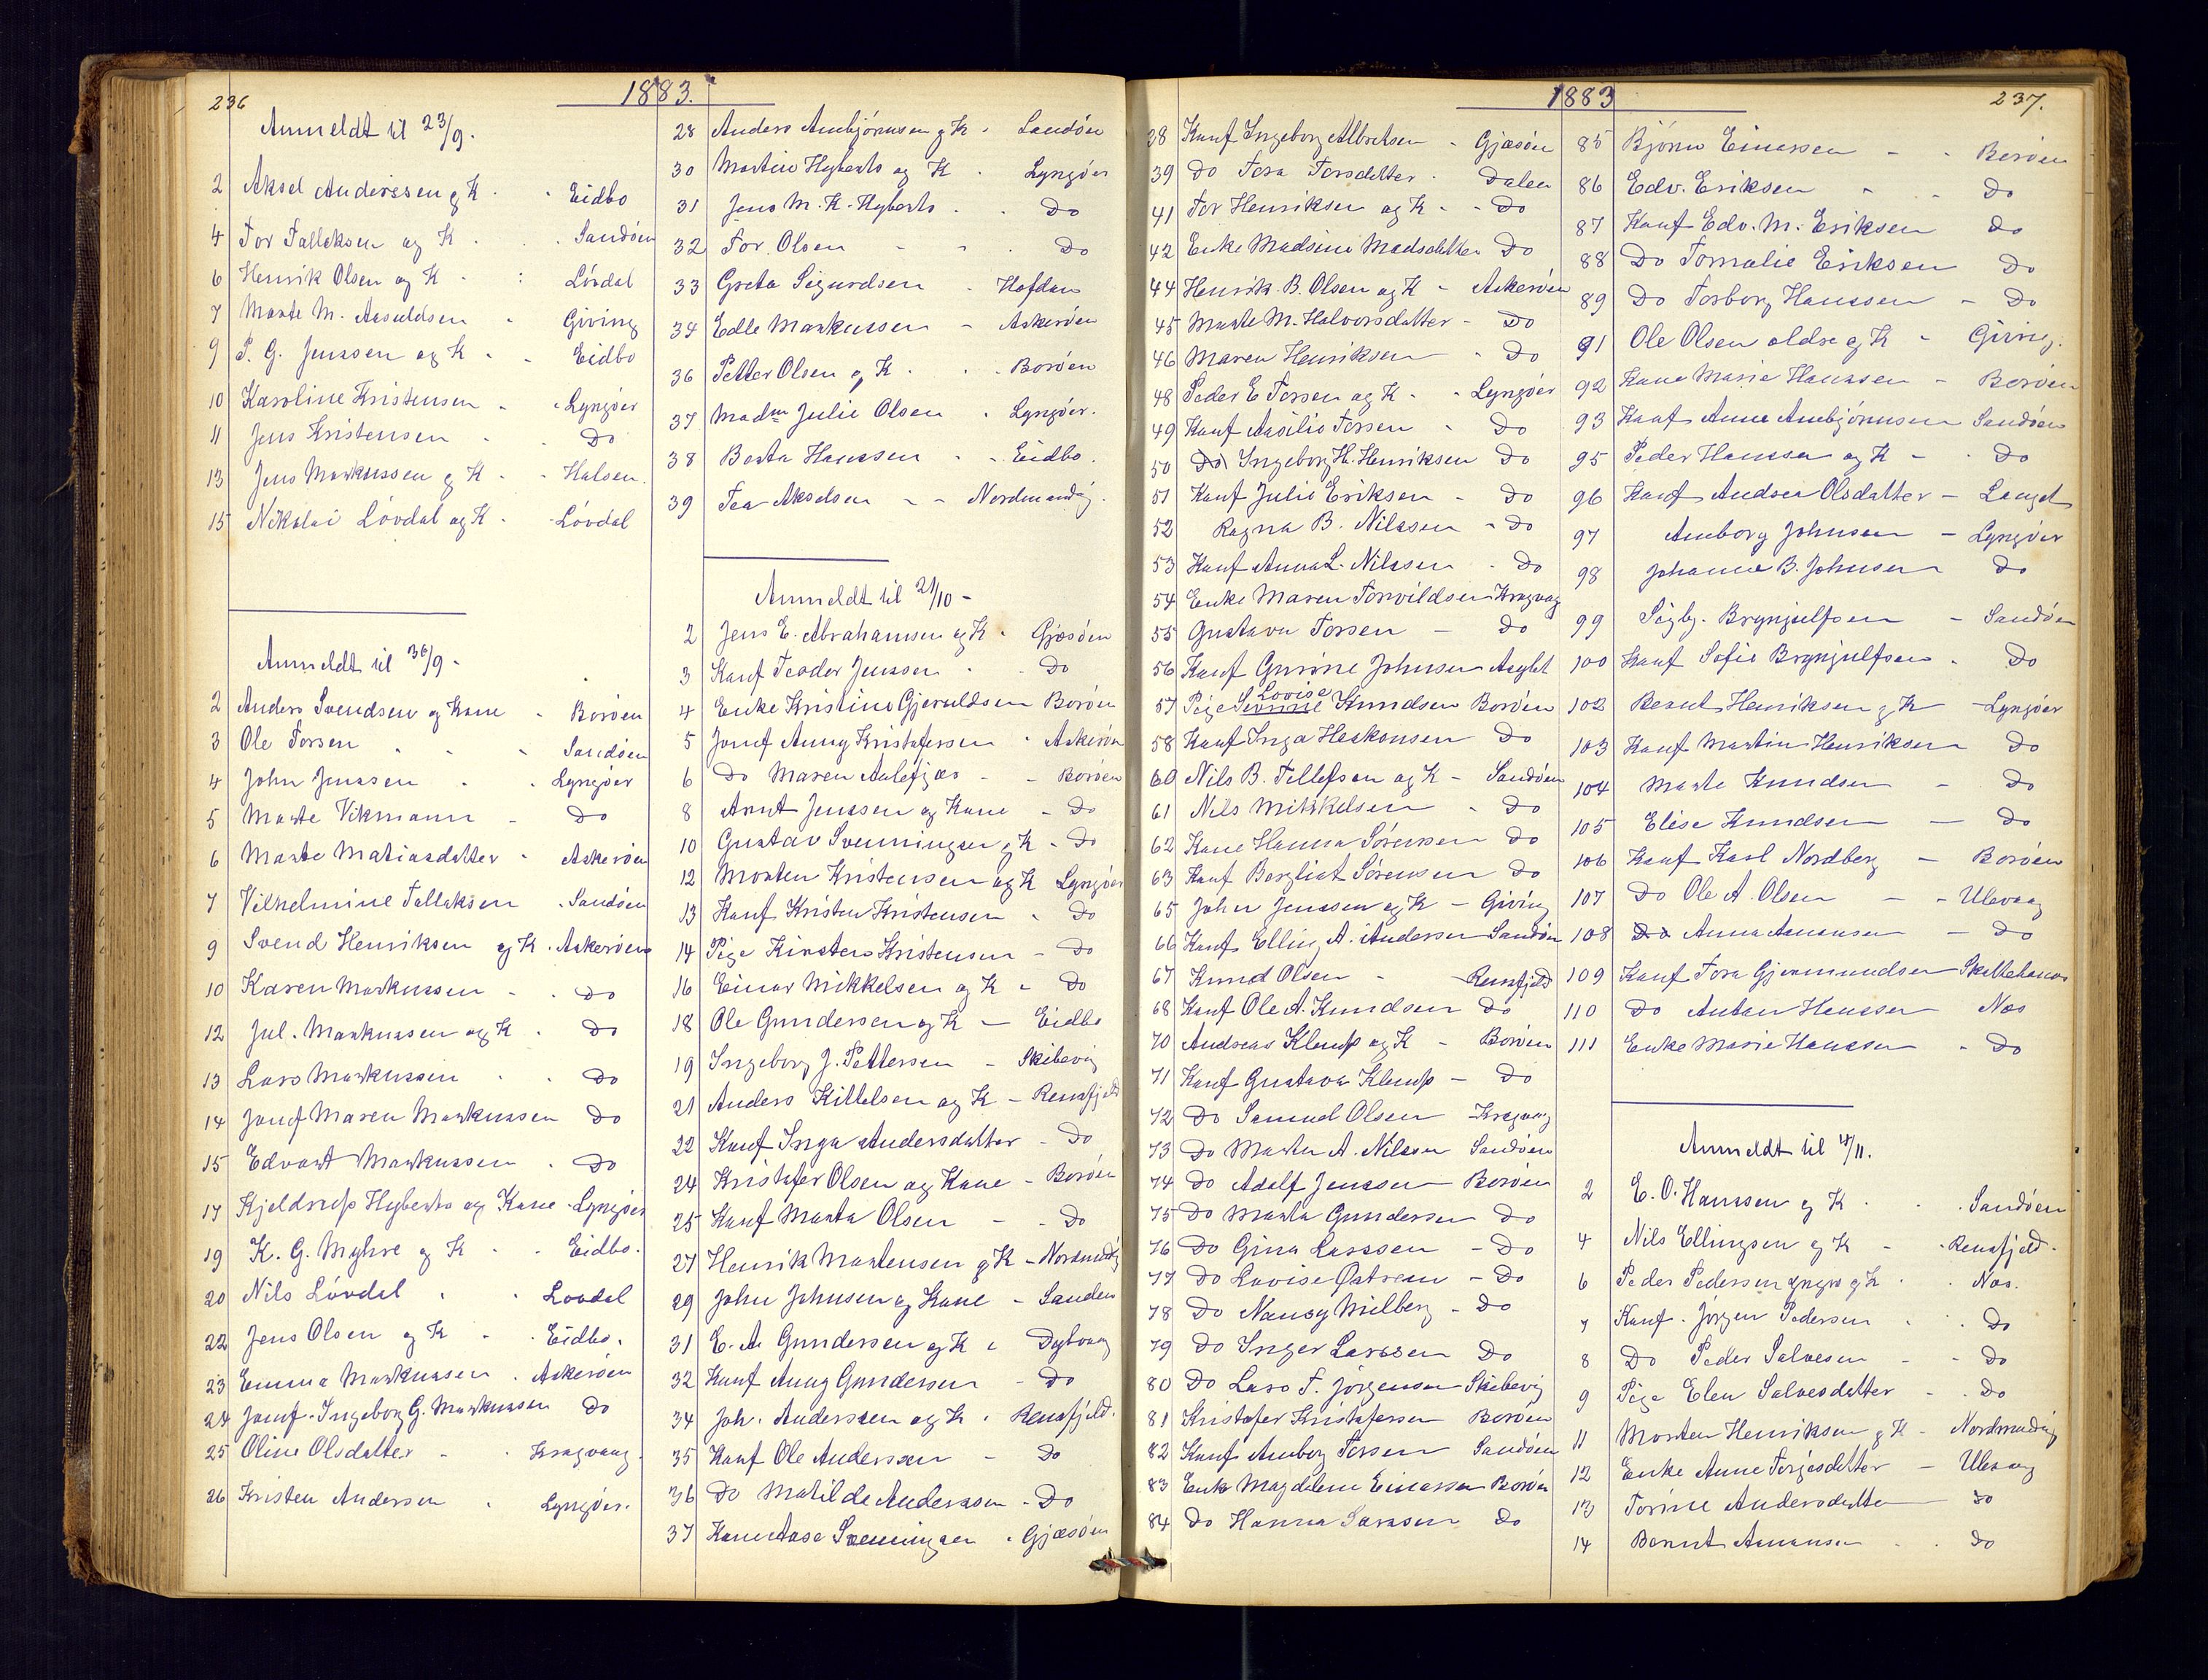 236
1883.
Anmeldt til 23/9.
2 Aksel Anderssen og K - - Eidbo
4 Tor Tallaksen og K - - Sandøen
6 Henrik Olsen og K - : Løvdal
7 Marte M. Aasuldsen - Giving
9 P. G. Jenssen og K - - Eidbo
10 Karoline Kristensen - - Lyngøer
11 Jens Kristensen - - Do
13 Jens Markussen og K - - Halsen.
15 Nikolai Løvdal og K - - Løvdal
Anmeldt til 30/9 -
2 Anders Svendsen og Kone - Borøen
3 Ole Torsen - - - Sandøen
4 John Jenssen - - Lyngøer
5 Marte Vikmann - Do
6 Marte Matiasdatter - Askerøen
7 Vilhelmine Tallaksen - Sandøen
9 Svend Henriksen og K. Askerøen
10 Karen Markussen - - Do
12 Jul. Markussen og K - Do
13 Lars Markussen - - Do
14 Jomf Maren Markussen Do
15 Edvart Markussen - Do
17 Kjeldrup Hyberts og Kone - Lyngøer
19 K. G. Myhre og K - - Eidbo.
20 Nils Løvdal - - Lovdal
22 Jens Olsen og K - - Eidbo.
23 Emma Markussen - Askerøen
24 Jomf. Ingeborg G. Markussen Do
25 Oline Olsdatter - - Kragvaag
26 Kristen Andersen - Lyngøer.
28 Anders Ambjørnsen og K - Sandøen
30 Martin Hyberts og K - Lyngøer
31 Jens M. K. Hyberts - - Do
32 Tor Olsen - - - Do
33 Greta Sigurdsen - Hafdan
34 Edle Markussen - Askerøen
36 Petter Olsen og K - - Borøen
37 Madm Julie Olsen - Lyngøer.
38 Berta Hanssen - - Eidbo.
39 Tea Akselsen - - Nordmandvig.
Anmeldt til 21/10 -
2 Jens E. Abrahamsen og K - Gjæsøen
3 Konf Teodor Jenssen - - Do
4 Enke Kristine Gjeruldsen Borøen
5 Jomf Anny Kristofersen - Askerøen
6 Do Maren Aalefjær - - Borøen
8 Arnt Jenssen og Kone - Do
10 Gustav Svenningsen og K - Do
12 Morten Kristensen og K Lyngøer
13 Konf Kristen Kristensen - Do
14 Pige Kirsten Kristensen - Do
16 Einar Mikkelsen og K - Do
18 Ole Gundersen og K - Eidbo
19 Ingeborg J. Pettersen - Skibevig
21 Anders Kittelsen og K - Rensfjeld
22 Konf Inga Andersdatter - Do
24 Kristofer Olsen og Kone - Borøen
25 Konf Marta Olsen - - Do
27 Henrik Mortensen og K - Nordmdvig
29 John Johnsen og Kone - Sanden
31 E. A. Gundersen og K - Dybvaag
32 Konf Anny Gundersen - Do
34 Joh. Anderssen og K - Rensfjeld.
35 Konf Ole Anderssen - Do
36 Do Matilde Anderssen - Do
37 Kone Aase Svenningsen - Gjæsøen
237.
1883
38 Konf Ingeborg Albretsen - Gjæsøen
39 Do Tora Torsdatter - Dalen
41 Tor Henriksen og K - - Do
42 Enke Madsine Madsdatter Do
44 Henrik B. Olsen og K - Askerøen
45 Marte M. Halvorsdatter - Do
46 Maren Henriksen - Do
48 Peder E Torsen og K - - Lyngøer
49 Konf Aasilie Torsen - Do
50 Do Ingeborg H. Henriksen Do
51 Konf Julie Eriksen - Do
52 Ragna B. Nilssen - Do
53 Konf Anna L. Nilssen - Do
54 Enke Maren Torvildsen Kragvaag
55 Gustava Torsen - Do
56 Konf Gurine Johnsen Asylet
57 Pige Lovise Knudsen Borøen
58 Konf Inga Heskonsen Do
60 Nils B. Tellefsen og K - Sandøen
61 Nils Mikkelsen - Do
62 Kone Hanna Sørensen Do
63 Konf Bergliot Sørensen Do
65 John Jenssen og K - Giving
66 Konf Elling A. Andersen Sandøen
67 Knud Olsen - - Rensfjeld
68 Konf Ole A. Knudsen Do
70 Andreas Klemp og K - Borøen
71 Konf Gustava Klemp - Do
72 Do Samuel Olsen Kragvaag
73 Do Marten A. Nilssen Sandøen
74 Do Adolf Jenssen Borøen
75 Do Marta Gundersen Do
76 Do Gina Larssen - Do
77 Do Lovise Østrem - Do
78 Do Nancy Milberg - Do
79 Do Inger Larssen Do
80 Do Lars T. Jørgensen Skibevig
81 Kristofer Kristofersen Borøen
82 Konf Amborg Torsen Sandøen
83 Enke Magdelene Einarsen Borøen
84 Do Hanna Larssen Do
85 Bjørn Einersen - - Borøen
86 Edv. Eriksen - - Do
87 Konf Edv. M. Eriksen Do
88 Do Tomalie Eriksen Do
89 Do Torborg Hanssen - Do
91 Ole Olsen ældre og K - Giving.
92 Kone Marie Hanssen - Borøen
93 Konf Anne Ambjørnsen Sandøen
95 Peder Hanssen og K - - Do
96 Konf Andrea Olsdatter - Langet
97 Amborg Johnsen - Lyngøer
98 Johanne B. Johnsen Do
99 Sigbj. Brynjulfsen - Sandøen
100 Konf Sofie Brynjulfsen - Do
102 Berent Henriksen og K - Lyngøer
103 Konf Martin Henriksen Do
104 Marte Knudsen - Do
105 Elise Knudsen - Do
106 Konf Karl Nordberg - Borøen
107 Do Ole A. Olsen - - Ulevaag
108 Do Anna Aanonsen - Do
109 Konf Tora Gjermundsen
110 Do Anton Hanssen Næs
111 Enke Marie Hanssen - Do
Anmeldt til 4/11.
2 E. O. Hanssen og K - - Sandøen
4 Nils Ellingsen og K - - Rensfjeld.
6 Peder Pedersen yngre og K - - Næs.
7 Konf. Jørgen Pedersen - - Do
8 Do Peder Salvesen - - Do
9 Pige Elen Salvesdatter - - Do
11 Morten Henriksen og K - Nordmndvig
12 Enke Anne Terjesdatter - Ulevaag
13 Torine Andersdatter Do
14 Berent Aanonsen - - Do